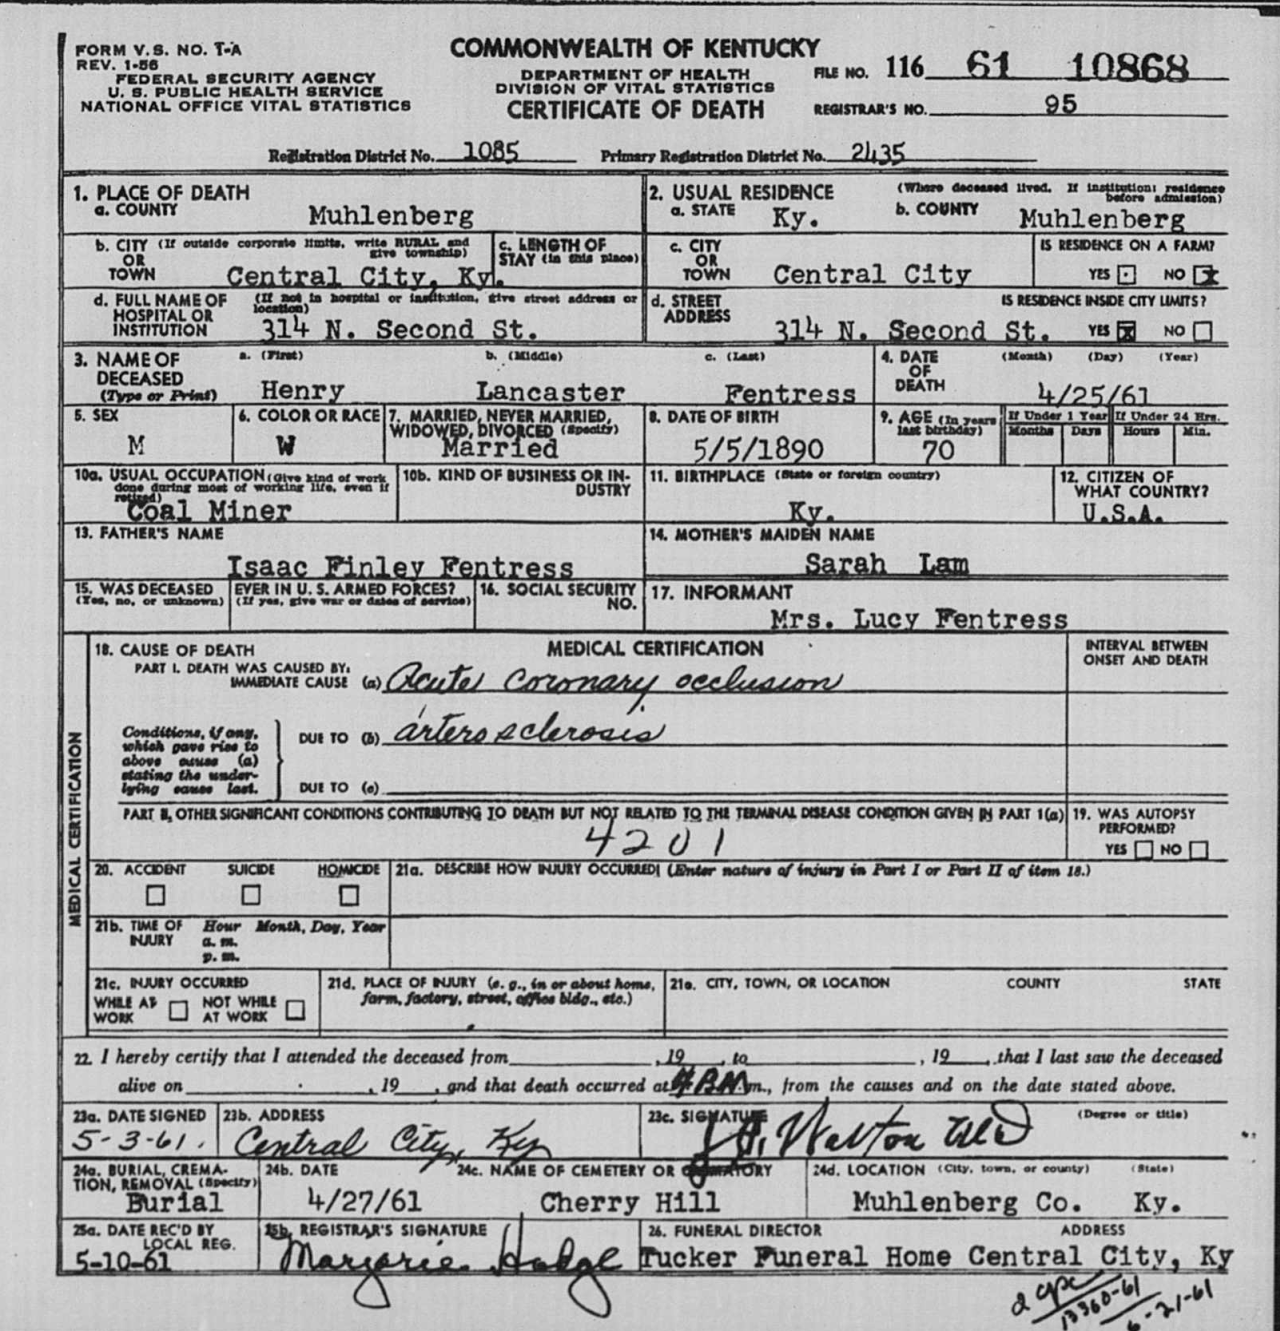 FORM V.S. NO. 1-A
REV. 1-56
FEDERAL SECURITY AGENCY
U. S. PUBLIC HEALTH SERVICE
NATIONAL OFFICE VITAL STATISTICS
COMMONWEALTH OF KENTUCKY
DEPARTMENT OF HEALTH
DIVISION OF VITAL STATISTICS
CERTIFICATE OF DEATH
FILE NO. 116 61 10868
REGISTRAR'S NO. 95
Registration District No. 1085 Primary Registration District No. 2435
1. PLACE OF DEATH
a. COUNTY Muhlenberg
2. USUAL RESIDENCE (Where deceased lived. If institution: residence before admission)
a. STATE Ky. b. COUNTY Muhlenberg
b. CITY (If outside corporate limits, write RURAL and give township)
OR
TOWN Central City, Ky.
c. LENGTH OF STAY (in this place)
c. CITY
OR
TOWN Central City
IS RESIDENCE ON A FARM?
YES NO X
d. FULL NAME OF HOSPITAL OR INSTITUTION (If not in hospital or institution, give street address or location)
314 N. Second St.
d. STREET ADDRESS 314 N. Second St.
IS RESIDENCE INSIDE CITY LIMITS?
YES X NO
3. NAME OF DECEASED (Type or Print)
a. (First) b. (Middle) c. (Last)
Henry Lancaster Fentress
4. DATE OF DEATH (Month) (Day) (Year)
4/25/61
5. SEX
M
6. COLOR OR RACE
W
7. MARRIED, NEVER MARRIED, WIDOWED, DIVORCED (Specify)
Married
8. DATE OF BIRTH
5/5/1890
9. AGE (In years last birthday)
70
If Under 1 Year If Under 24 Hrs.
Months Days Hours Min.
10a. USUAL OCCUPATION (Give kind of work done during most of working life, even if retired)
Coal Miner
10b. KIND OF BUSINESS OR INDUSTRY
11. BIRTHPLACE (State or foreign country)
Ky.
12. CITIZEN OF WHAT COUNTRY?
U.S.A.
13. FATHER'S NAME
Isaac Finley Fentress
14. MOTHER'S MAIDEN NAME
Sarah Lam
15. WAS DECEASED EVER IN U. S. ARMED FORCES?
(Yes, no, or unknown) (If yes, give war or dates of service)
16. SOCIAL SECURITY NO.
17. INFORMANT
Mrs. Lucy Fentress
MEDICAL CERTIFICATION
18. CAUSE OF DEATH MEDICAL CERTIFICATION
INTERVAL BETWEEN ONSET AND DEATH
PART I. DEATH WAS CAUSED BY:
IMMEDIATE CAUSE (a) Acute coronary occlusion
Conditions, if any, which gave rise to above cause (a) stating the underlying cause last.
DUE TO (b) arterosclerosis
DUE TO (c)
PART II. OTHER SIGNIFICANT CONDITIONS CONTRIBUTING TO DEATH BUT NOT RELATED TO THE TERMINAL DISEASE CONDITION GIVEN IN PART I(a)
4201
19. WAS AUTOPSY PERFORMED?
YES NO
20. ACCIDENT SUICIDE HOMICIDE
21a. DESCRIBE HOW INJURY OCCURRED (Enter nature of injury in Part I or Part II of item 18.)
21b. TIME OF INJURY Hour Month, Day, Year
a. m.
p. m.
21c. INJURY OCCURRED
WHILE AT WORK NOT WHILE AT WORK
21d. PLACE OF INJURY (e. g., in or about home, farm, factory, street, office bldg., etc.)
21e. CITY, TOWN, OR LOCATION COUNTY STATE
22. I hereby certify that I attended the deceased from , 19 , to , 19 , that I last saw the deceased
alive on , 19 , and that death occurred at m., from the causes and on the date stated above.
23a. DATE SIGNED
5-3-61.
23b. ADDRESS
Central City, Ky
23c. SIGNATURE (Degree or title)
Walton MD
24a. BURIAL, CREMATION, REMOVAL (Specify)
Burial
24b. DATE
4/27/61
24c. NAME OF CEMETERY OR CREMATORY
Cherry Hill
24d. LOCATION (City, town, or county) (State)
Muhlenberg Co. Ky.
25a. DATE REC'D BY LOCAL REG.
5-10-61
25b. REGISTRAR'S SIGNATURE
Marjorie Hodge
26. FUNERAL DIRECTOR ADDRESS
Tucker Funeral Home Central City, Ky
13360-61
6-21-61